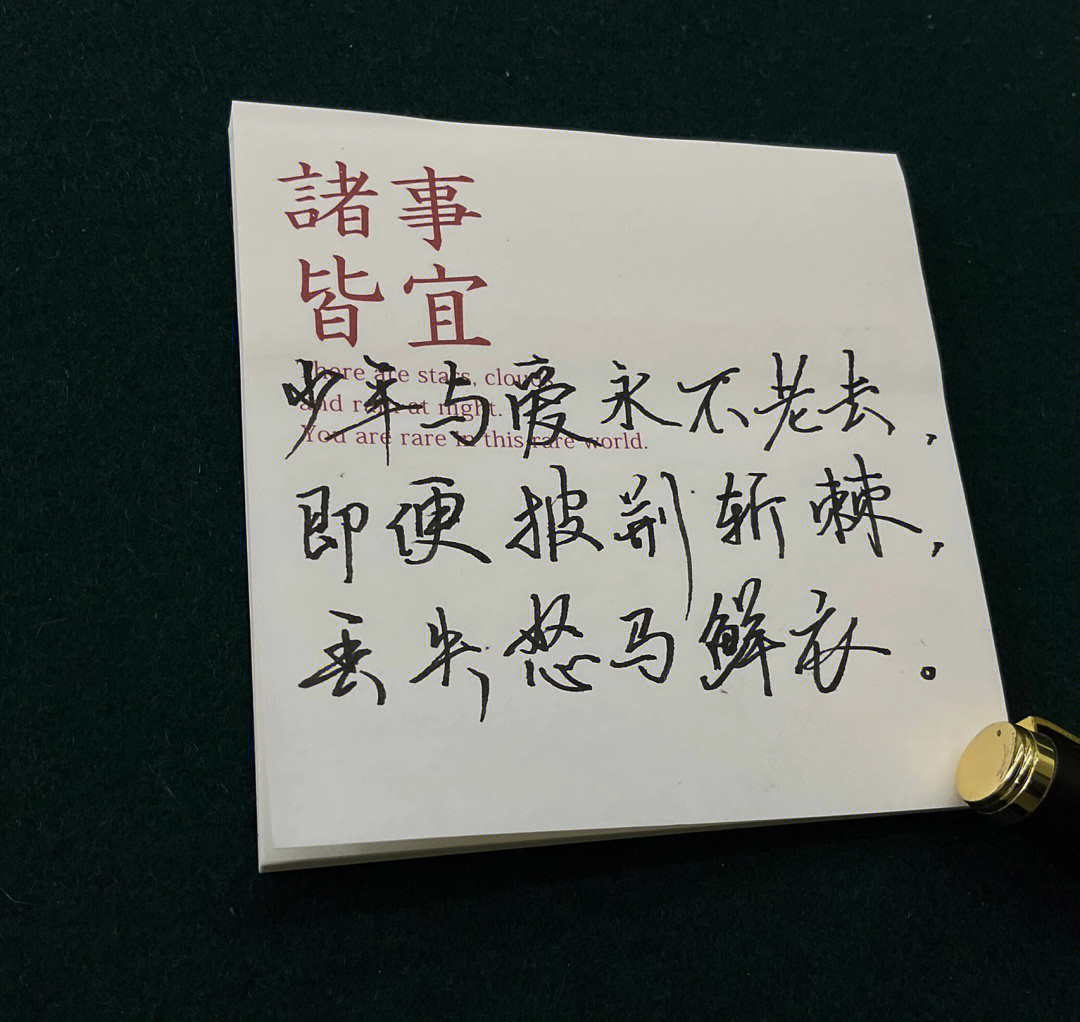 諸事
皆宜
There are stars, clouds
and rain at night.
You are rare in this rare world.
少年与爱永不老去，
即便披荆斩棘，
丢失怒马鲜衣。